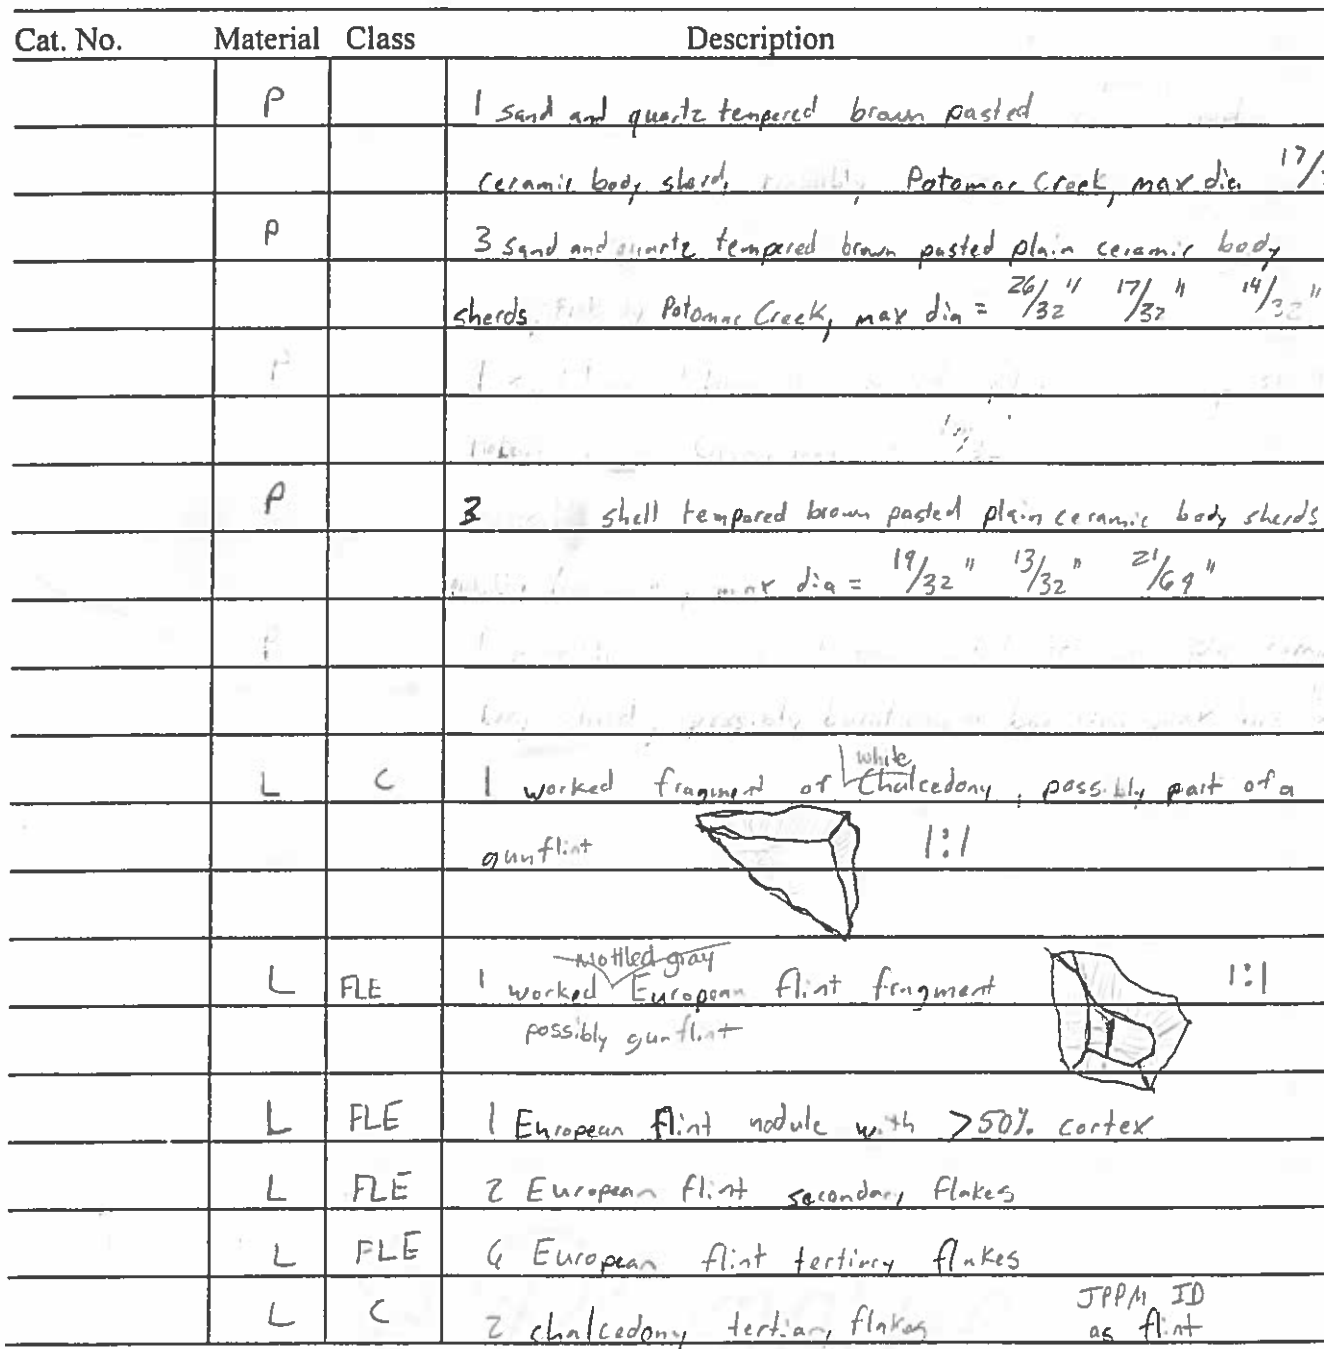 Cat. No. Material Class Description
P 1 sand and quartz tempered brown pasted
ceramic body sherd, Potomac Creek, max dia 17/
P 3 sand and quartz tempered brown pasted plain ceramic body
sherds Potomac Creek, max dia = 26/32" 17/32" 14/32"
P 3 shell tempered brown pasted plain ceramic body sherds
max dia = 19/32" 13/32" 21/64"
L C 1 worked fragment of white Chalcedony, possibly part of a
gunflint 1:1
L FLE 1 worked Mottled gray European flint fragment 1:1
possibly gunflint
L FLE 1 European flint nodule with >50% cortex
L FLE 2 European flint secondary flakes
L FLE European flint tertiary flakes
L C 2 chalcedony tertiary flakes JPPM ID
as flint